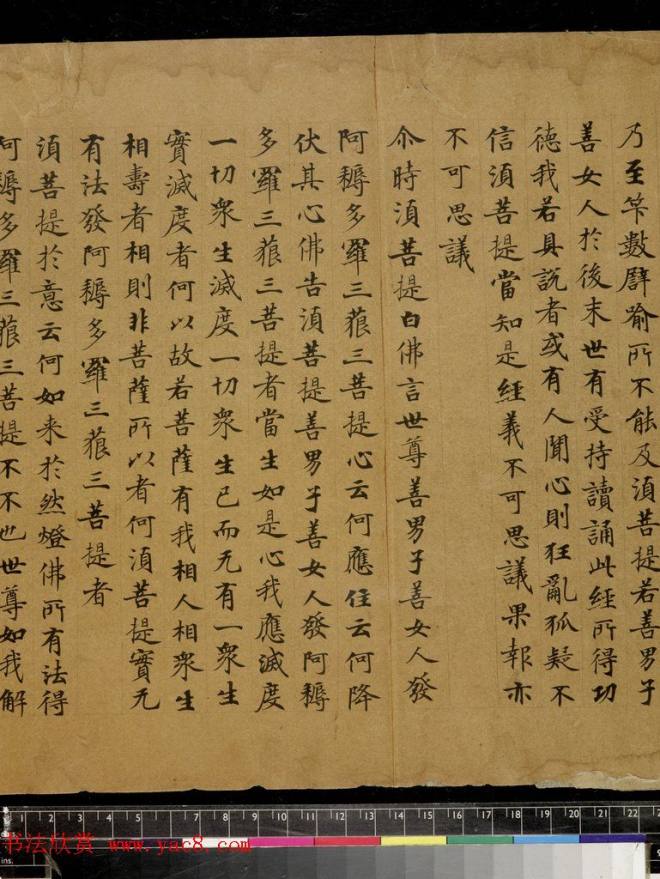 乃至筭數譬喻所不能及湏菩提若善男子
善女人於後末世有受持讀誦此經所得功
徳我若具說者或有人聞心則狂亂狐疑不
信湏菩提當知是經義不可思議果報亦
不可思議
尒時湏菩提白佛言世尊善男子善女人發
阿耨多羅三藐三菩提心云何應住云何降
伏其心佛告湏菩提善男子善女人發阿耨
多羅三藐三菩提者當生如是心我應滅度
一切衆生滅度一切衆生已而无有一衆生
實滅度者何以故若菩薩有我相人相衆生
相壽者相則非菩薩所以者何湏菩提實无
有法發阿耨多羅三藐三菩提者
湏菩提於意云何如来於然燈佛所有法得
阿耨多羅三藐三菩提不不也世尊如我解
1 2 3 4 5 6 7 8 9 10 11 12 13 14 15 16 17 18 19 20 21 22 23
书法欣赏 www.yac8.com
ins.